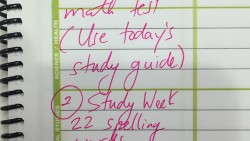 math test
(Use today's
study guide)
② Study Week
22 spelling